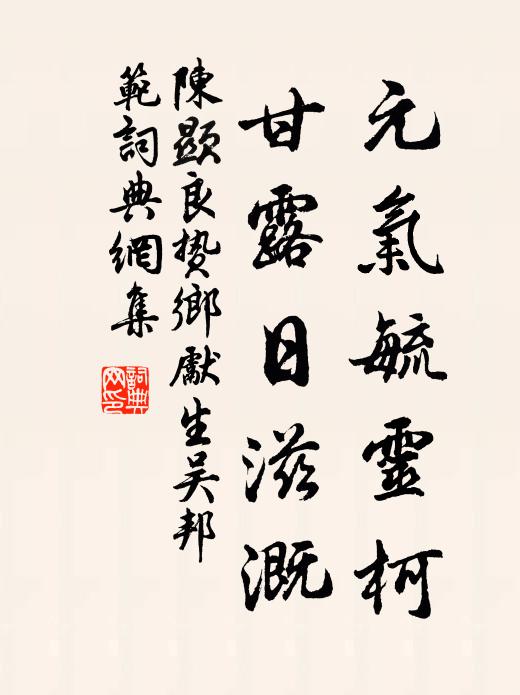 元氣毓靈柯
甘露日滋溉
陳顯良贄鄉獻生吴邦
範詞典網集
詞典網印